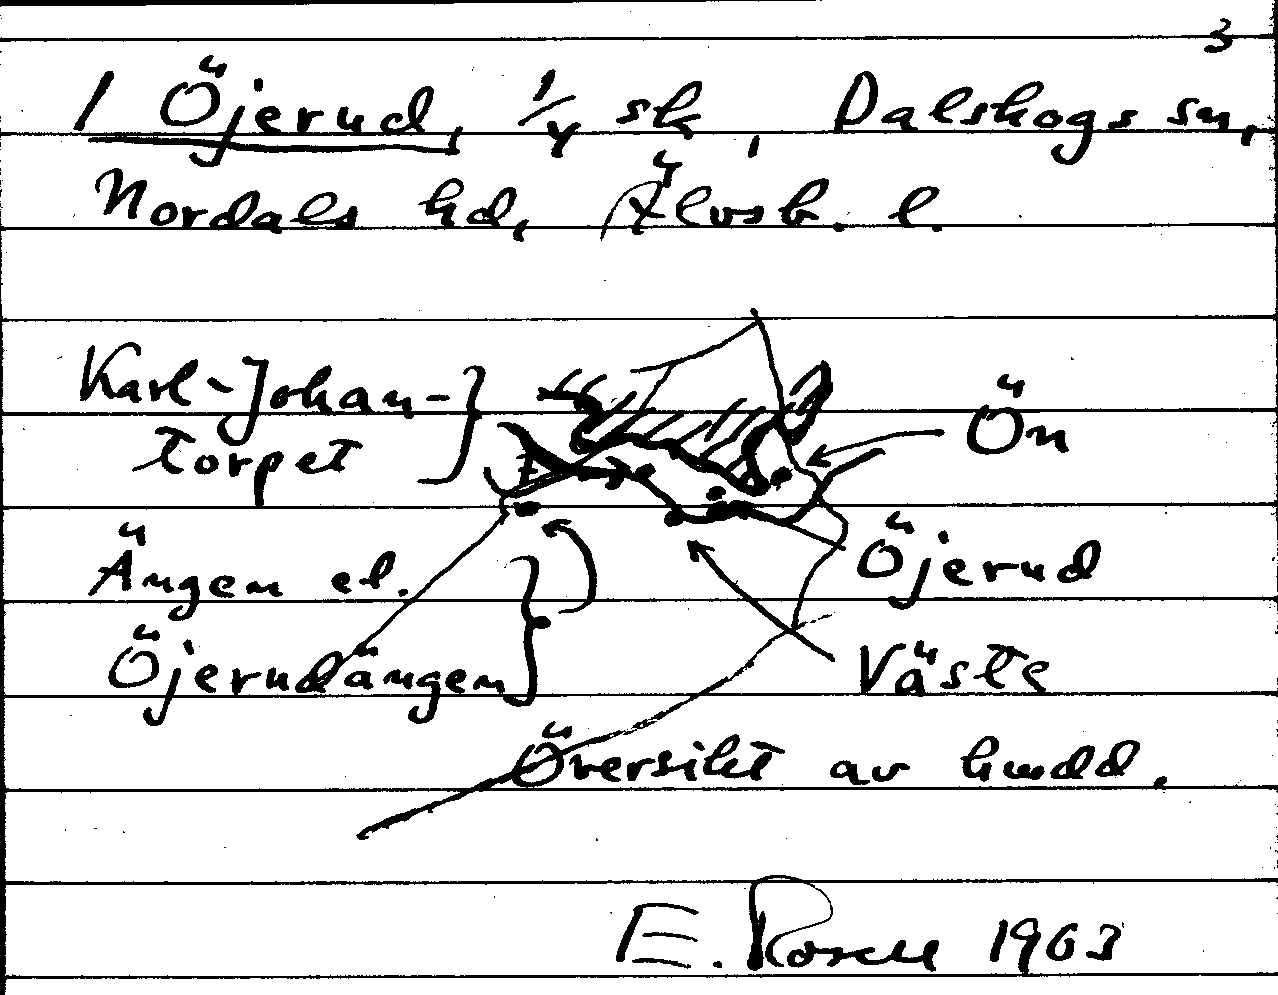 3
1 Öjerud, 1/4 sk, Dalskogs sn,
Nordals hd, Älvsb. l.
Karl-Johan-
torpet
Ön
Ängen el.
Öjerudängen
Öjerud
Väste
Översikt av hmdd.
E. Rosell 1963